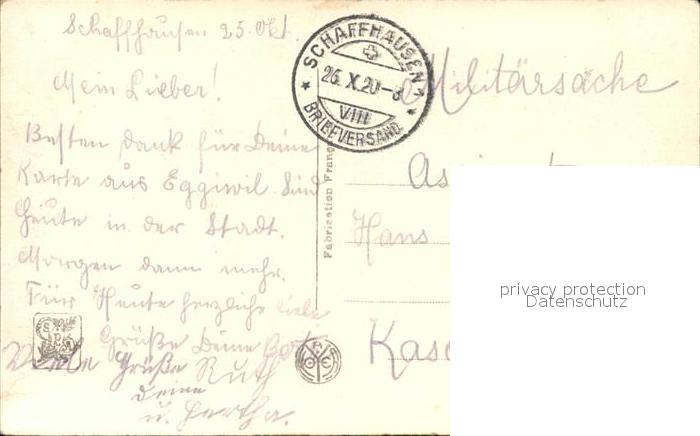 Schaffhausen 25. Okt.
Mein Lieber!
Besten Dank für Deine
Karte aus Eggiwil. Sind
heute in der Stadt.
Morgen dann mehr.
Für Heute herzliche liebe
Grüße Deine
Viele Grüße Ruth
Deine
u. Hertha.
SCHAFFHAUSEN 1
26. X. 20 – 8
VIII
BRIEFVERSAND
Fabrication Fran
Militärsache
As
Hans
Kas
privacy protection
Datenschutz